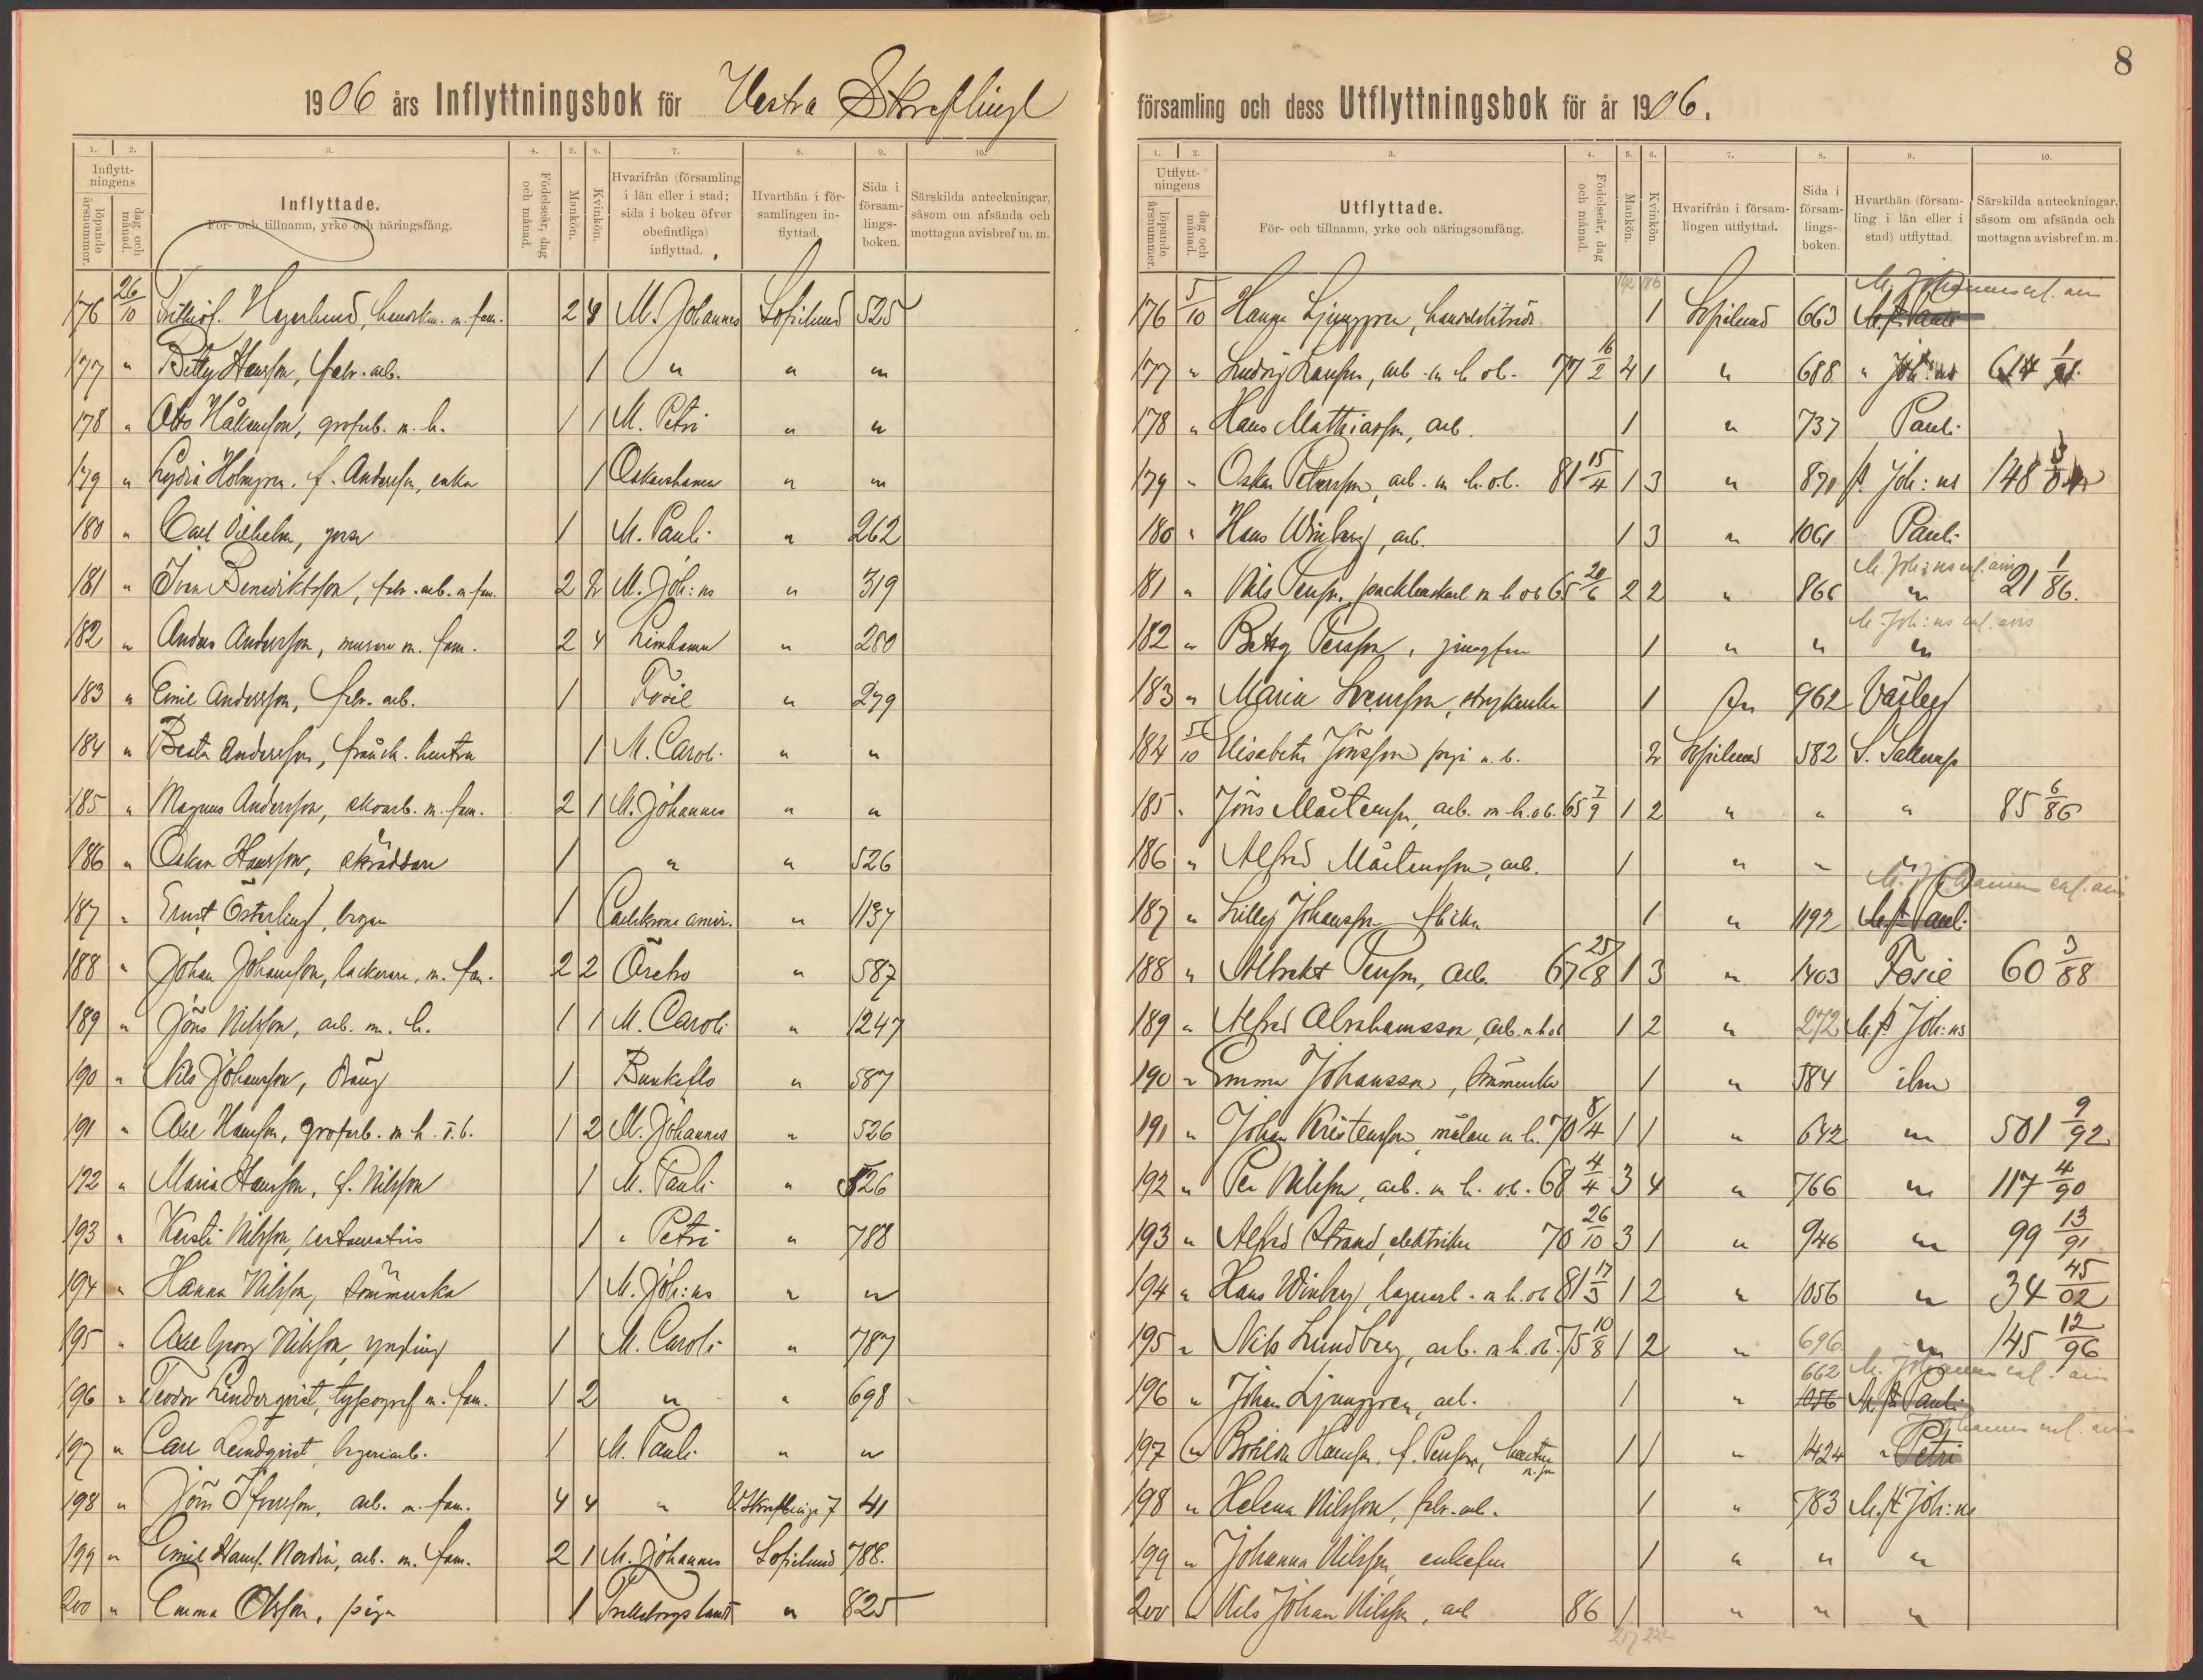 1906 års Inflyttningsbok för Vestra Skreflinge
1. 2. 3. 4. 5. 6. 7. 8. 9. 10.
Inflyttningens
löpande årsnummer.
dag och månad.
Inflyttade.
För- och tillnamn, yrke och näringsfång.
Födelseår, dag och månad.
Mankön.
Kvinkön.
Hvarifrån (församling i län eller i stad; sida i boken öfver obefintliga) inflyttad.
Hvarthän i församlingen inflyttad.
Sida i församlingsboken.
Särskilda anteckningar, såsom om afsända och mottagna avisbref m. m.
176 26/10 Frithiof Hagerlund, m. fam. 2 4 M. Johannes Sofielund 525
177 " Betty Hansson, fabr. arb. 1 " " "
178 " Otto Håkansson, grofarb. m. h. 1 1 M. Petri " "
179 " Lydia Holmgren, f. Andersson, enka 1 Oskarshamn " "
180 " Carl Vilhelm, gosse 1 M. Pauli " 262
181 " Sven Benediktsson, fabr. arb. m. fam. 2 2 M. Joh:ns " 319
182 " Anders Andersson, murare m. fam. 2 4 Limhamn " 280
183 " Emil Andersson, fabr. arb. 1 Fosie " 279
184 " Andersson, frånsk. hustru 1 M. Caroli " "
185 " Magnus Andersson, skoarb. m. fam. 2 1 M. Johannes " "
186 " Oskar Hansson, skräddare 1 " " 526
187 " Ernst Österling, 1 Carlskrona amir. " 1137
188 " Johan Johansson, lackerare, m. fam. 2 2 Örebro " 587
189 " Jöns Nilsson, arb. m. h. 1 1 M. Caroli " 1247
190 " Nils Johansson, dräng 1 Bunkeflo " 587
191 " Axel Hansson, grofarb. m. h. o. b. 1 2 M. Johannes " 526
192 " Maria Hansson, f. Nilsson 1 M. Pauli " 526
193 " Kersti Nilsson, 1 " Petri " 788
194 " Hanna Nilsson, sömmerska 1 M. Joh:ns " "
195 " Axel Georg Nilsson, yngling 1 M. Caroli " 787
196 " Teodor Linderqvist, typograf m. fam. 1 2 " " 698
197 " Carl Lindqvist, bageriarb. 1 M. Pauli " "
198 " Jöns Ifvarsson, arb. m. fam. 4 4 " V. Skreflinge 7 41
199 " Emil Hans. Nordin, arb. m. fam. 2 1 M. Johannes Sofielund 788.
200 " Emma Olsson, piga 1 Trelleborgs landsf. " 825
8
församling och dess Utflyttningsbok för år 1906.
1. 2. 3. 4. 5. 6. 7. 8. 9. 10.
Utflyttningens
löpande årsnummer.
dag och månad.
Utflyttade.
För- och tillnamn, yrke och näringsomfång.
Födelseår, dag och månad.
Mankön.
Kvinkön.
Hvarifrån i församlingen utflyttad.
Sida i församlingsboken.
Hvarthän (församling i län eller i stad) utflyttad.
Särskilda anteckningar, såsom om afsända och mottagna avisbref m. m.
M. Johannes enl. avis
176 5/10 Hanna Ljunggren, handelsbiträde 1 Sofielund 663 M. St. Pauli
177 " Ludvig Hansson, arb. m. h. o. b. 77 16/2 4 1 " 688 " Joh:ns
178 " Hans Mattiasson, arb. 1 " 737 Pauli
179 " Oskar Petersson, arb. m. h. o. b. 81 15/4 1 3 " 870 St. Joh:ns 148
180 " Hans Winberg, arb. 1 3 " 1061 Pauli
M. Joh:ns enl. avis
181 " Nils Persson, packhuskarl m. h. o. b. 65 20/6 2 2 " 866 " 21 1/86.
M. Joh:ns enl. avis
182 " Betsy Persson, jungfru 1 " " "
183 " Maria Svensson, strykerska 1 962 Väsby
184 5/10 Elisabeth Jönsson piga m. b. 2 Sofielund 582 S. Sallerup
185 " Jöns Mårtensson, arb. m. h. o. b. 65 7/9 1 2 " " " 85 6/86
186 " Alfred Mårtensson, arb. 1 " " "
M. Johannes enl. avis
187 " Lilly Johansson flicka 1 " 1192 M. St. Pauli
188 " Albrekt Persson, arb. 67 25/8 1 3 " 1403 Fosie 60 3/88
189 " Alfred Abrahamsson, arb. m. h. o. b. 1 2 " 272 M. St. Joh:ns
190 " Emma Johansson, sömmerska 1 " 584 ibm
191 " Johan Kristensson, målare m. h. 70 8/4 1 1 " 642 " 501 9/92
192 " Per Nilsson, arb. m. h. o. b. 68 4/4 3 4 " 766 " 117 4/90
193 " Alfred Strand, elektriker 70 26/10 3 1 " 946 " 99 13/91
194 " Hans Winberg, lagerarb. m. h. o. b. 81 17/3 1 2 " 1056 " 34 45/02
195 " Nils Lundberg, arb. m. h. o. b. 75 10/8 1 2 " 696 " 145 12/96
662 M. Johannes enl. avis
196 " Johan Ljunggren, arb. 1 " 1056 M. St. Pauli
Johannes enl. avis
197 " Bothilda Hansson, f. Persson, hustru 1 1 " 1424 " Petri
198 " Helena Nilsson, fabr. arb. 1 " 783 M. St. Joh:ns
199 " Johanna Nilsson, enkefru 1 " " "
200 " Nils Johan Nilsson, arb. 86 1 " " "